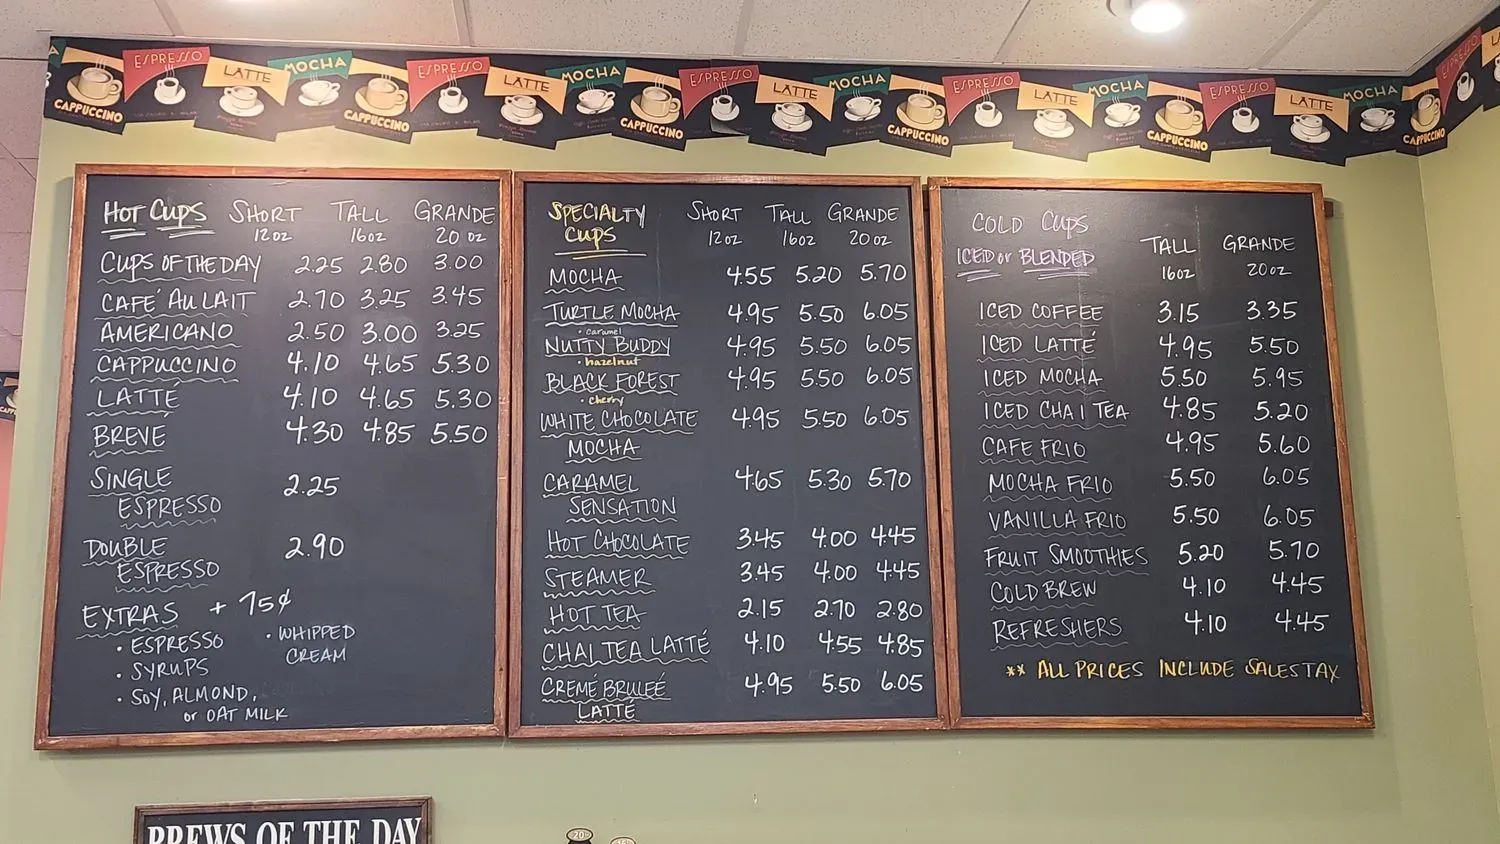 CAPPUCCINO ESPRESSO LATTE MOCHA CAPPUCCINO ESPRESSO LATTE MOCHA CAPPUCCINO ESPRESSO LATTE MOCHA CAPPUCCINO ESPRESSO LATTE MOCHA CAPPUCCINO ESPRESSO LATTE MOCHA CAPPUCCINO ESPRESSO
HOT CUPS SHORT TALL GRANDE
12 oz 16oz 20 oz
CUPS OF THE DAY 2.25 2.80 3.00
CAFÉ AU LAIT 2.70 3.25 3.45
AMERICANO 2.50 3.00 3.25
CAPPUCCINO 4.10 4.65 5.30
LATTÉ 4.10 4.65 5.30
BREVÉ 4.30 4.85 5.50
SINGLE
ESPRESSO 2.25
DOUBLE
ESPRESSO 2.90
EXTRAS + 75¢
• ESPRESSO • WHIPPED
CREAM
• SYRUPS
• SOY, ALMOND,
or OAT MILK
SPECIALTY
CUPS
SHORT TALL GRANDE
12oz 16oz 20 oz
MOCHA 4.55 5.20 5.70
TURTLE MOCHA 4.95 5.50 6.05
• caramel
NUTTY BUDDY 4.95 5.50 6.05
• hazelnut
BLACK FOREST 4.95 5.50 6.05
• cherry
WHITE CHOCOLATE 4.95 5.50 6.05
MOCHA
CARAMEL 4.65 5.30 5.70
SENSATION
HOT CHOCOLATE 3.45 4.00 4.45
STEAMER 3.45 4.00 4.45
HOT TEA 2.15 2.70 2.80
CHAI TEA LATTÉ 4.10 4.55 4.85
CREMÉ BRULEÉ 4.95 5.50 6.05
LATTÉ
COLD CUPS
ICED or BLENDED
TALL GRANDE
16oz 20oz
ICED COFFEE 3.15 3.35
ICED LATTÉ 4.95 5.50
ICED MOCHA 5.50 5.95
ICED CHAI TEA 4.85 5.20
CAFE FRIO 4.95 5.60
MOCHA FRIO 5.50 6.05
VANILLA FRIO 5.50 6.05
FRUIT SMOOTHIES 5.20 5.70
COLD BREW 4.10 4.45
REFRESHERS 4.10 4.45
** ALL PRICES INCLUDE SALES TAX
BREWS OF THE DAY
20